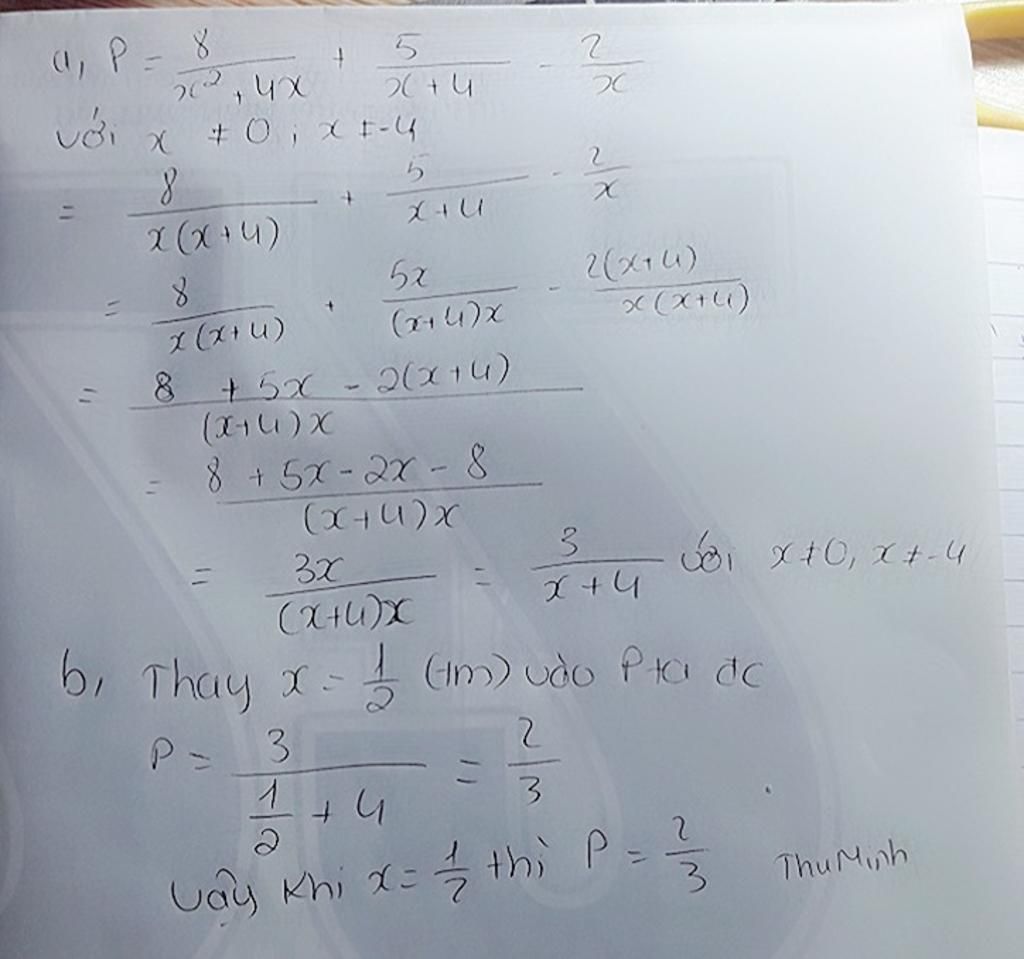 a, P = 8/(x² + 4x) + 5/(x + 4) - 2/x
với x ≠ 0 ; x ≠ -4
= 8/(x(x+4)) + 5/(x+4) - 2/x
= 8/(x(x+4)) + 5x/((x+4)x) - 2(x+4)/(x(x+4))
= (8 + 5x - 2(x+4))/((x+4)x)
= (8 + 5x - 2x - 8)/((x+4)x)
= 3x/((x+4)x) = 3/(x+4) với x ≠ 0, x ≠ -4
b, Thay x = 1/2 (tm) vào P ta đc
P = 3/(1/2 + 4) = 2/3
Vậy khi x = 1/2 thì P = 2/3 Thu Minh